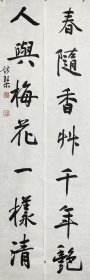 春随香艸千年艷
人與梅花一樣清